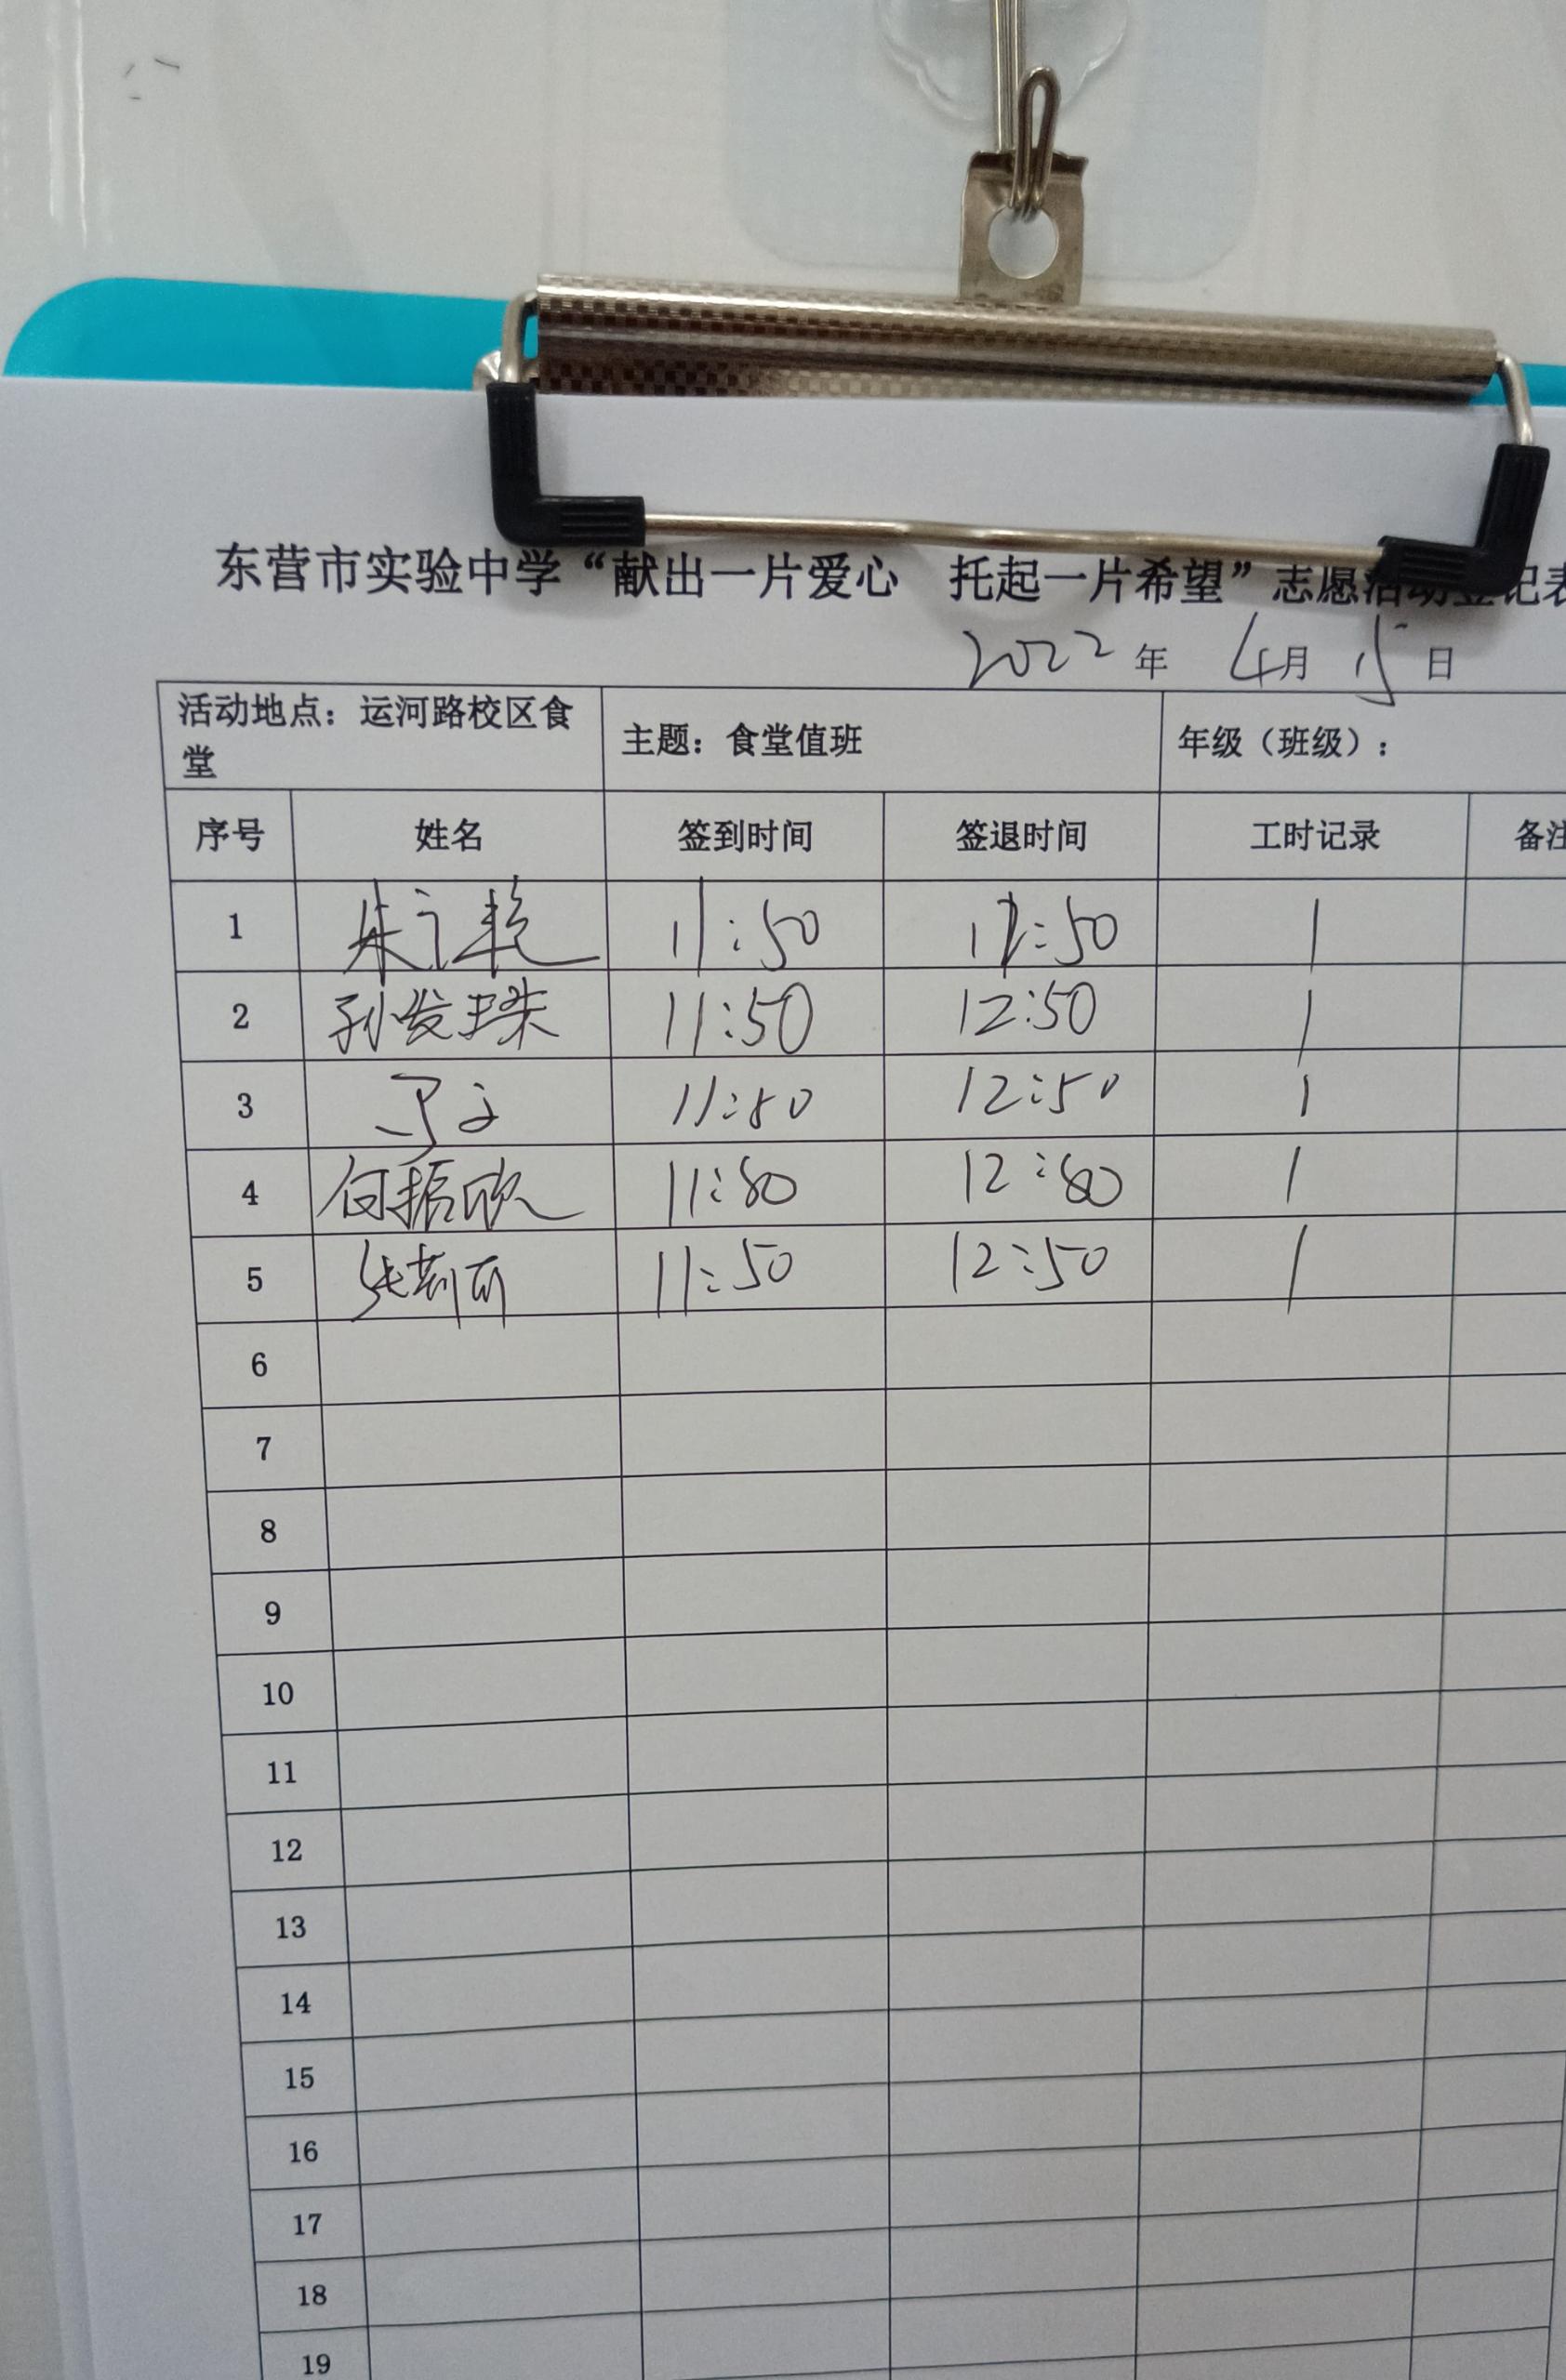 东营市实验中学“献出一片爱心 托起一片希望”志愿活动登记表
2022年 4月 15日
活动地点：运河路校区食堂 主题：食堂值班 年级（班级）：
序号 姓名 签到时间 签退时间 工时记录 备注
1 11:50 12:50 1
2 孙发珠 11:50 12:50 1
3 11:50 12:50 1
4 何振欣 11:50 12:50 1
5 张莉丽 11:50 12:50 1
6
7
8
9
10
11
12
13
14
15
16
17
18
19